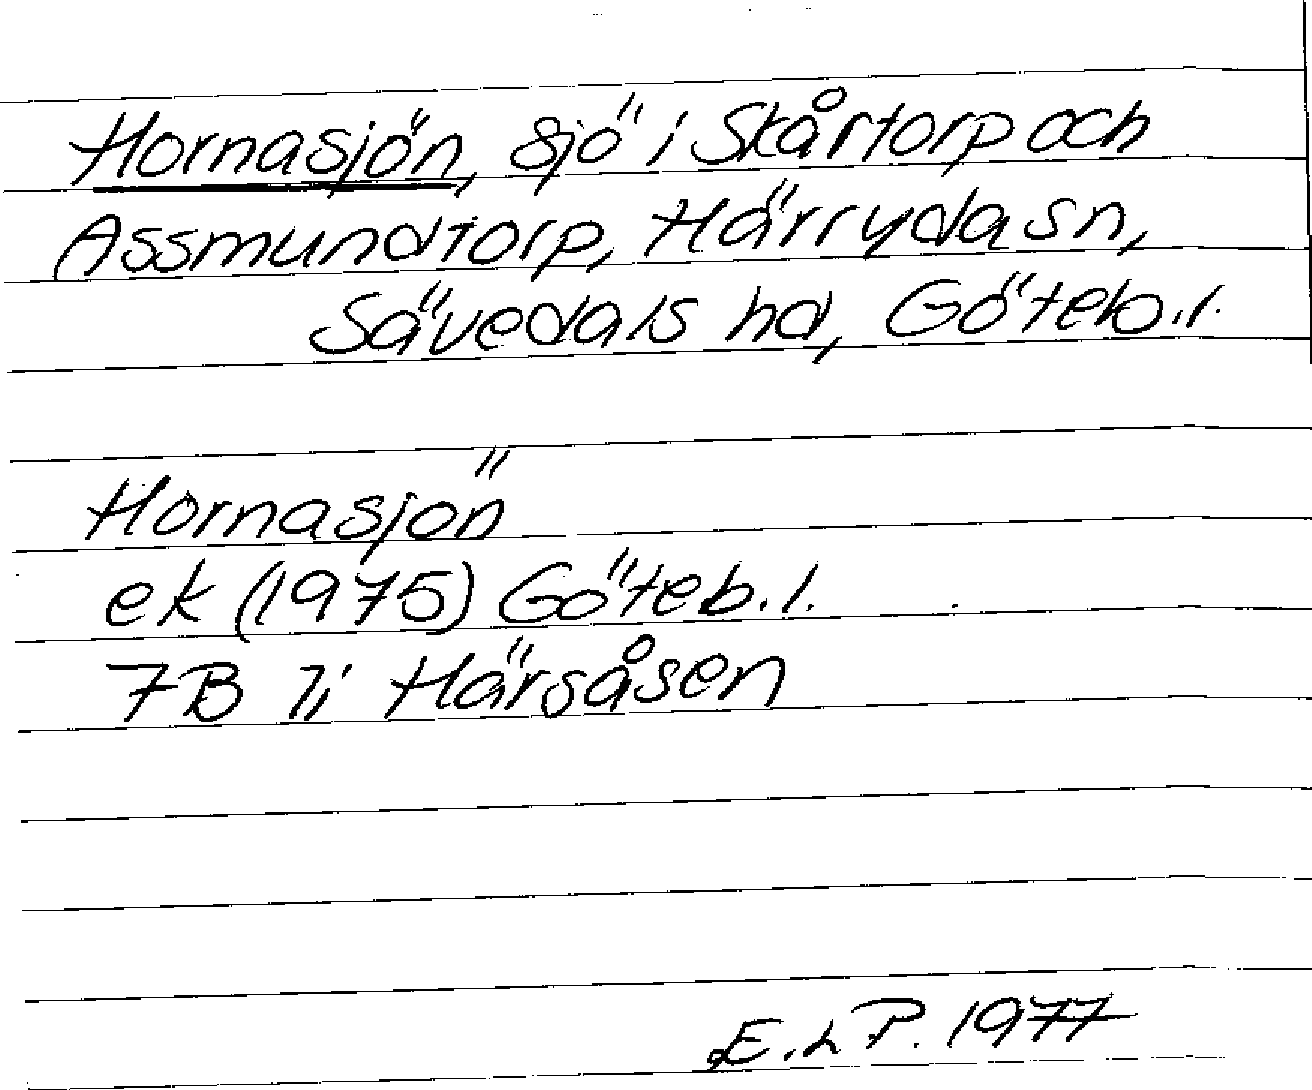 Hornasjön, sjö i Skårtorp och
Assmundtorp, Härryda sn,
Sävedals hd, Göteb.l.
Hornasjön
ek (1975) Göteb.l.
7B 7i Härsåsen
E.L P. 1977